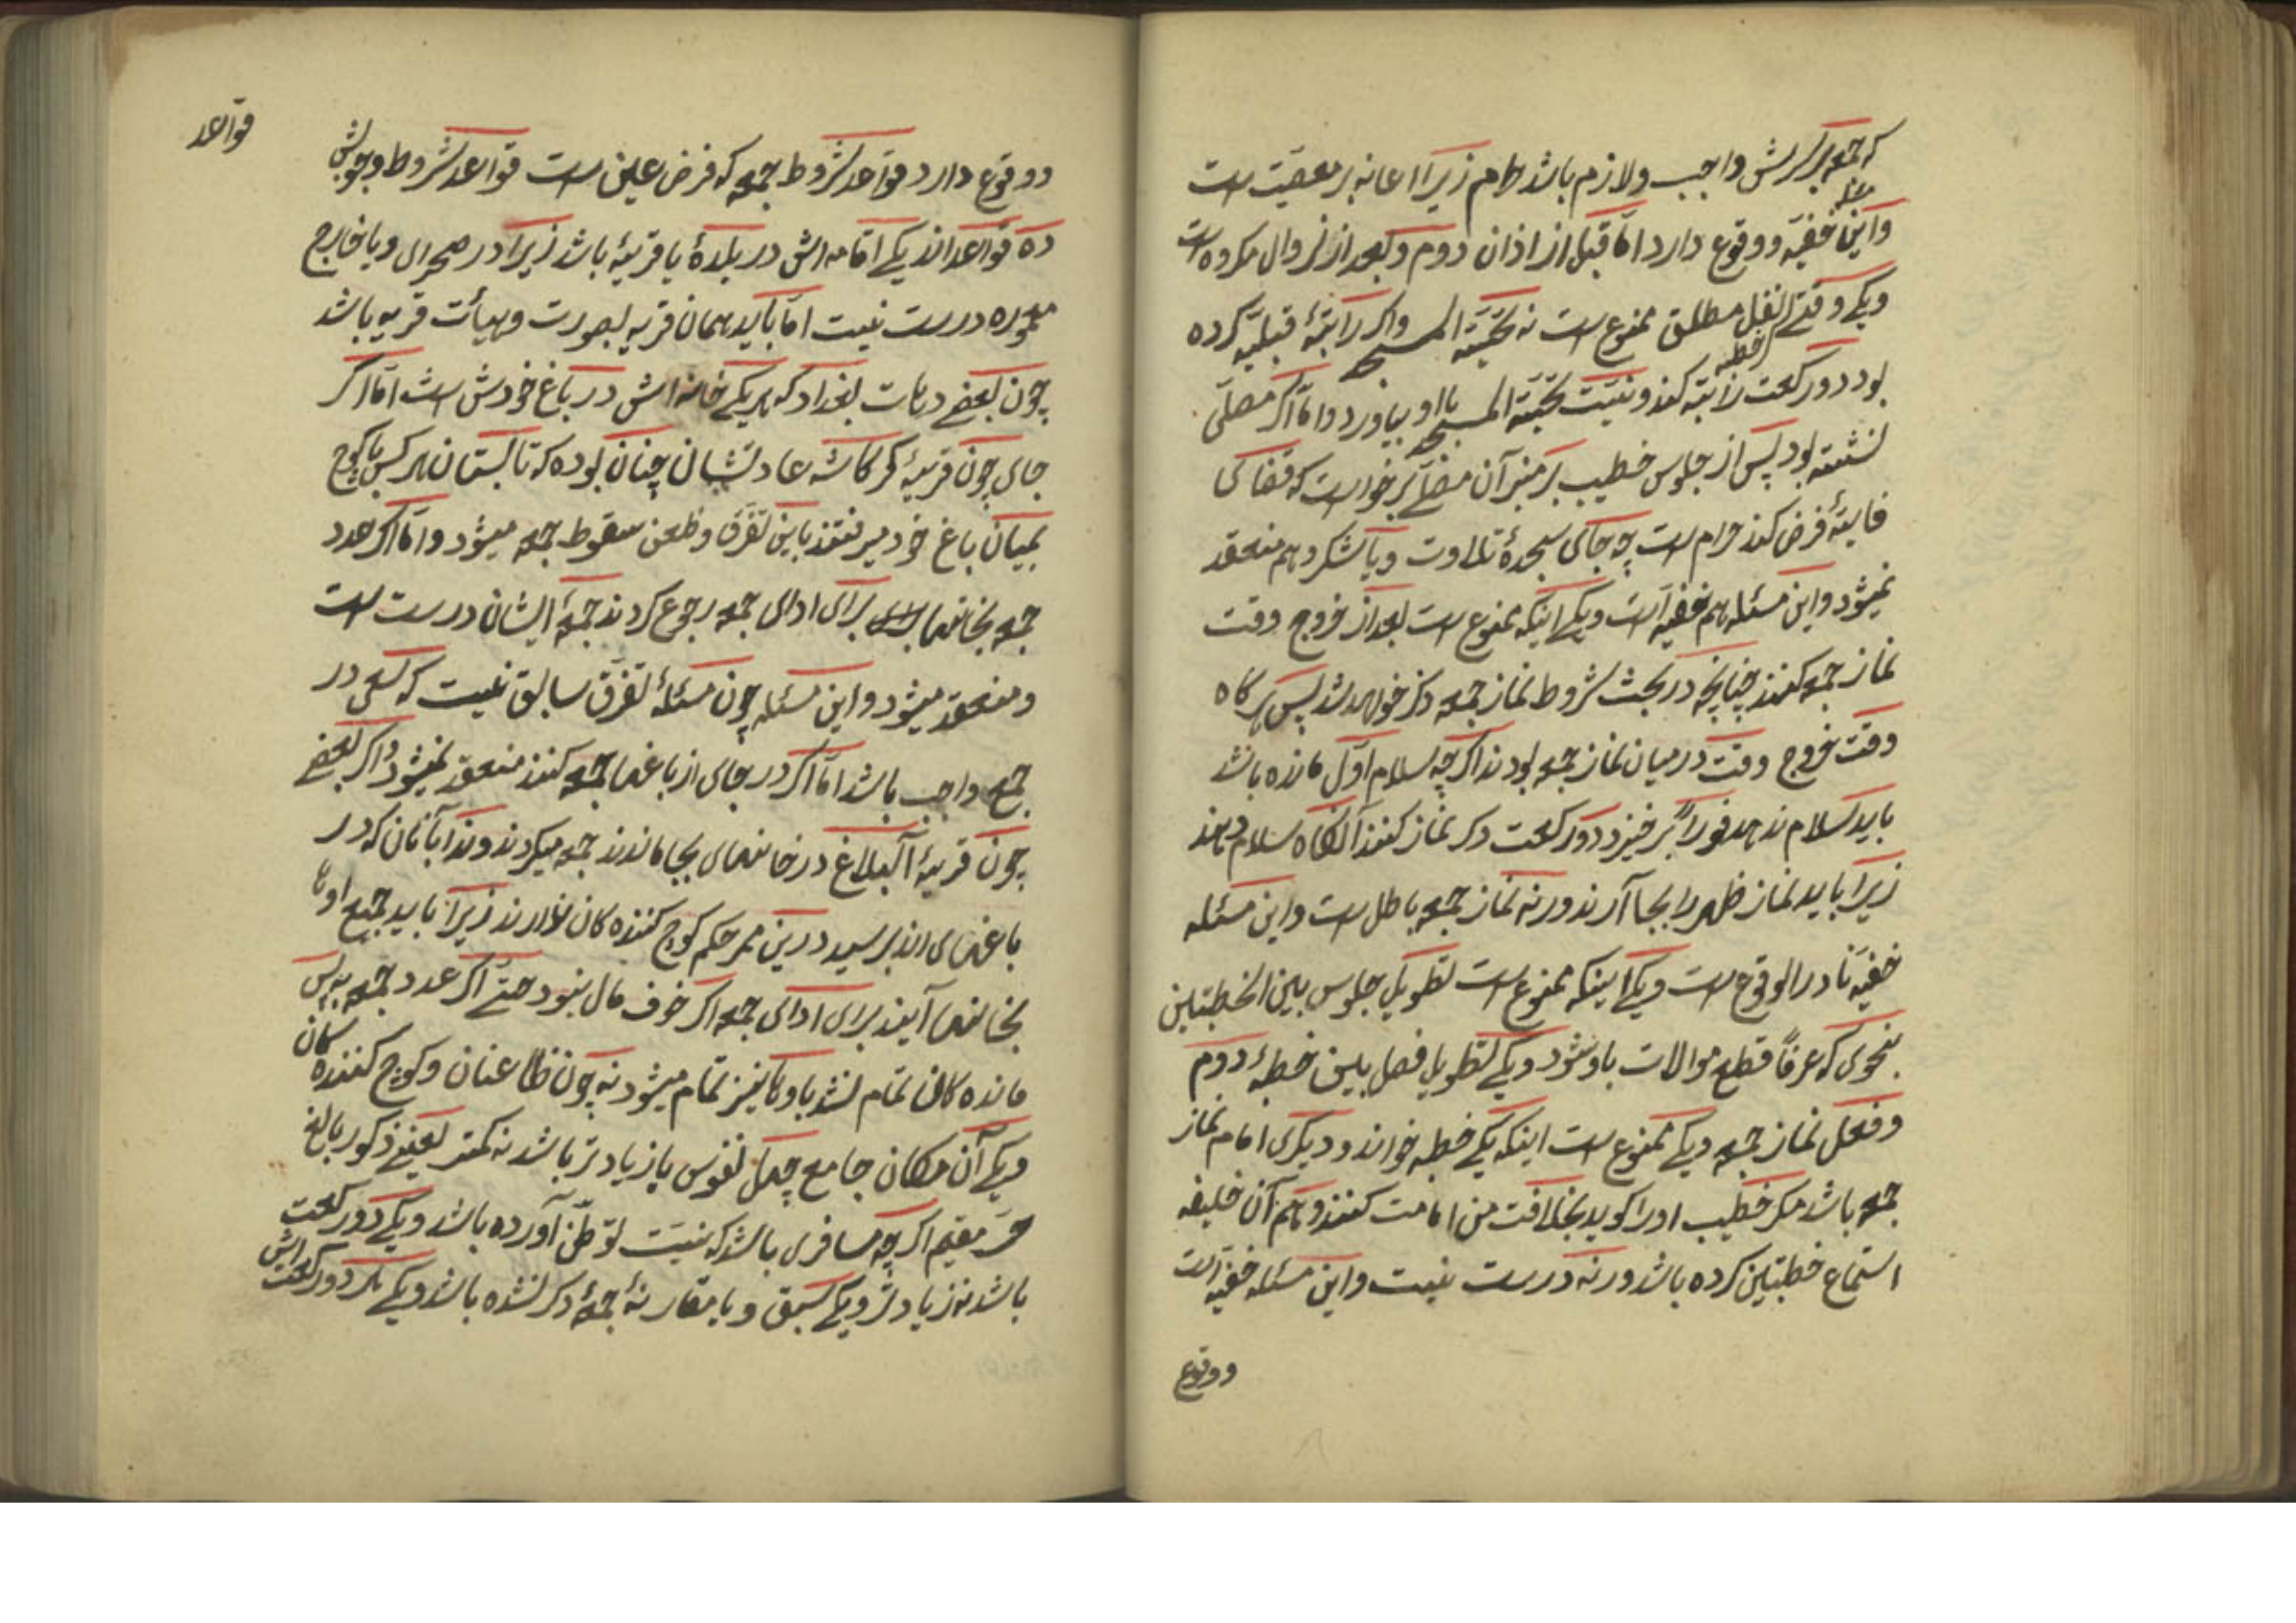 که جمعه بر سرش واجب ولازم باشد حرام زیرا اعانه بر معصیت است
واین خفیّه ووقوع دارد امّا قبل از اذان دوم وبعد از زوال مکروه است
ویکے وقتے نفل مطلق ممنوع است نه تحیّته المسجد واکر راتبهٔ قبلیّه کرده
خطبه
بود دو رکعت راتبه کند ونیّت تحیّته المسجد بااو بیاورد وامّا اکر مصلّی
نشسته بود پس از جلوس خطیب بر منبر آن مصلّے برخواست که قضاکی
فایتهٔ فرض کند حرام است چه جاکی سجدهٔ تلاوت ویا شکر وهم منعقد
نمیشود واین مسئله هم خفیه است ویکے اینکه ممنوع است بعد از خروج وقت
نماز جمعه کنند چنانچه در بحث شروط نماز جمعه ذکر خواهد شد پس هرکاه
وقت خروج وقت در میان نماز جمعه بودند اکرچه سلام اوّل مانده باشد
باید سلام ندهد فوراً بر خیزد دو رکعت دکر نماز کنند آنکاه سلام دهند
زیرا باید نماز ظهر را بجا آرند ورنه نماز جمعه باطل است واین مسئله
خفیه نادر الوقوع است ویکے اینکه ممنوع است تطویل جلوس بین الخطبتین
بنحوی که عرفاً قطع موالات باو شود ویکے تطویل فصل بین خطبهٔ دوم
وفعل نماز جمعه ویکے ممنوع است اینکه یکے خطبه خواند ودیکری امام نماز
جمعه باشد مکر خطیب اورا کوید بخلافت من امامت کنند وهم آن خلیفه
استماع خطبتین کرده باشد ورنه درست نیست واین مسئله خفیّه است
ووقوع
قواعد
ووقوع دارد قواعد شروط جمعه که فرض عین است قواعد شروط وجوبش
ده قواعد اند یکے اقامه اش در بلدهٔ یا قریهٔ باشد زیرا در صحرای ویا خارج
معموره درست نیست امّا باید همان قریه بصورت وهیأت قریه باشد
چون بعضے دهات بغداد که هر یکے خانه اش در باغ خودش است امّا اکر
جای چون قریهٔ کرکاشه عادتشان چنان بوده که تابستان هر کس با کوچ
بمیان باغ خود میرفتند باین تفرّق وظعن سقوط جمعه میشود وامّا اکر عدد
جمعه بخانها برای ادای جمعه رجوع کردند جمعهٔ ایشان درست است
ومنعقد میشود واین مسئله چون مسئلهٔ تفرّق سابق نیست که سعی در
جمعه واجب باشد امّا اکر در جای از باغها جمعه کنند منعقد نمیشود واکر بعضے
چون قریهٔ آلبلاغ در خانهای بجا ماندند جمعه میکردند وندا بآنان که در
باغهای اند برسید درین ممر حکم کوچ کننده کان ندارند زیرا باید جمیع اونها
بخانها آیند برای ادای جمعه اکر خوف مال نبود حتّے اکر عدد جمعه به پس
مانده کان تمام نشد باونها نیز تمام میشود نه چون ظاعنان وکوچ کننده کان
ویکے آن مکان جامع چهل نفوس یا زیادتر باشد نه کمتر یعنے ذکور بالغ
حرّ مقیم اکرچه مسافری باشد که نیّت توطّن آورده باشد ویکے دو رکعت
باشد نه زیادتر ویکے سبق ویا مقارنهٔ جمعهٔ دکر نشده باشد ویکے هر دو رکعت اش